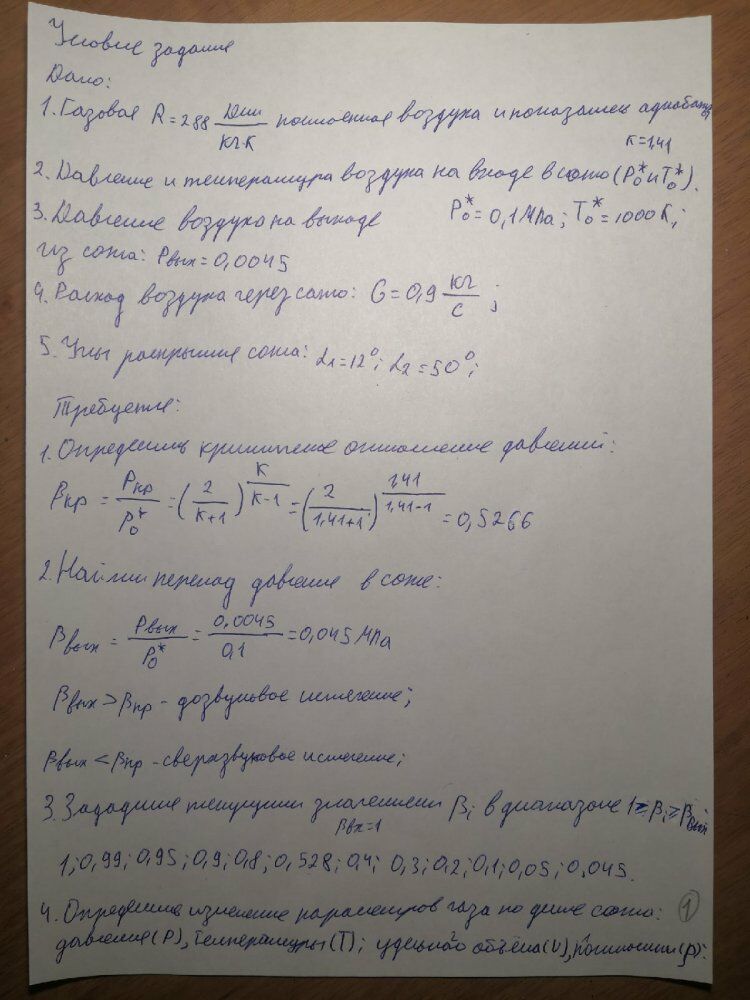 Условие задания
Дано:
1. Газовая R = 288 Дж/кг·К постоянная воздуха и показатель адиабаты
к=1,41
2. Давление и температура воздуха на входе в сопло (P₀* и T₀*).
P₀* = 0,1 МПа; T₀* = 1000 К;
3. Давление воздуха на выходе
из сопла: Pвых = 0,0045
4. Расход воздуха через сопло: G = 0,9 кг/с;
5. Углы раскрытия сопла: α₁ = 12°; α₂ = 50°;
Требуется:
1. Определить критическое отношение давлений:
βкр = Pкр/P₀* = (2/(к+1))^(к/(к-1)) = (2/(1,41+1))^(1,41/(1,41-1)) = 0,5266
2. Найти перепад давление в сопле:
βвых = Pвых/P₀* = 0,0045/0,1 = 0,045 МПа
βвых > βкр - дозвуковое истечение;
βвых < βкр - сверхзвуковое истечение;
3. Зададимся текущими значениями βi в диапазоне 1 ≥ βi ≥ βвых
βвх = 1
1; 0,99; 0,95; 0,9; 0,8; 0,528; 0,4; 0,3; 0,2; 0,1; 0,05; 0,045.
4. Определить изменение параметров газа по длине сопла: 1
давления (P), температуры (T); удельного объёма (υ), плотности (ρ):